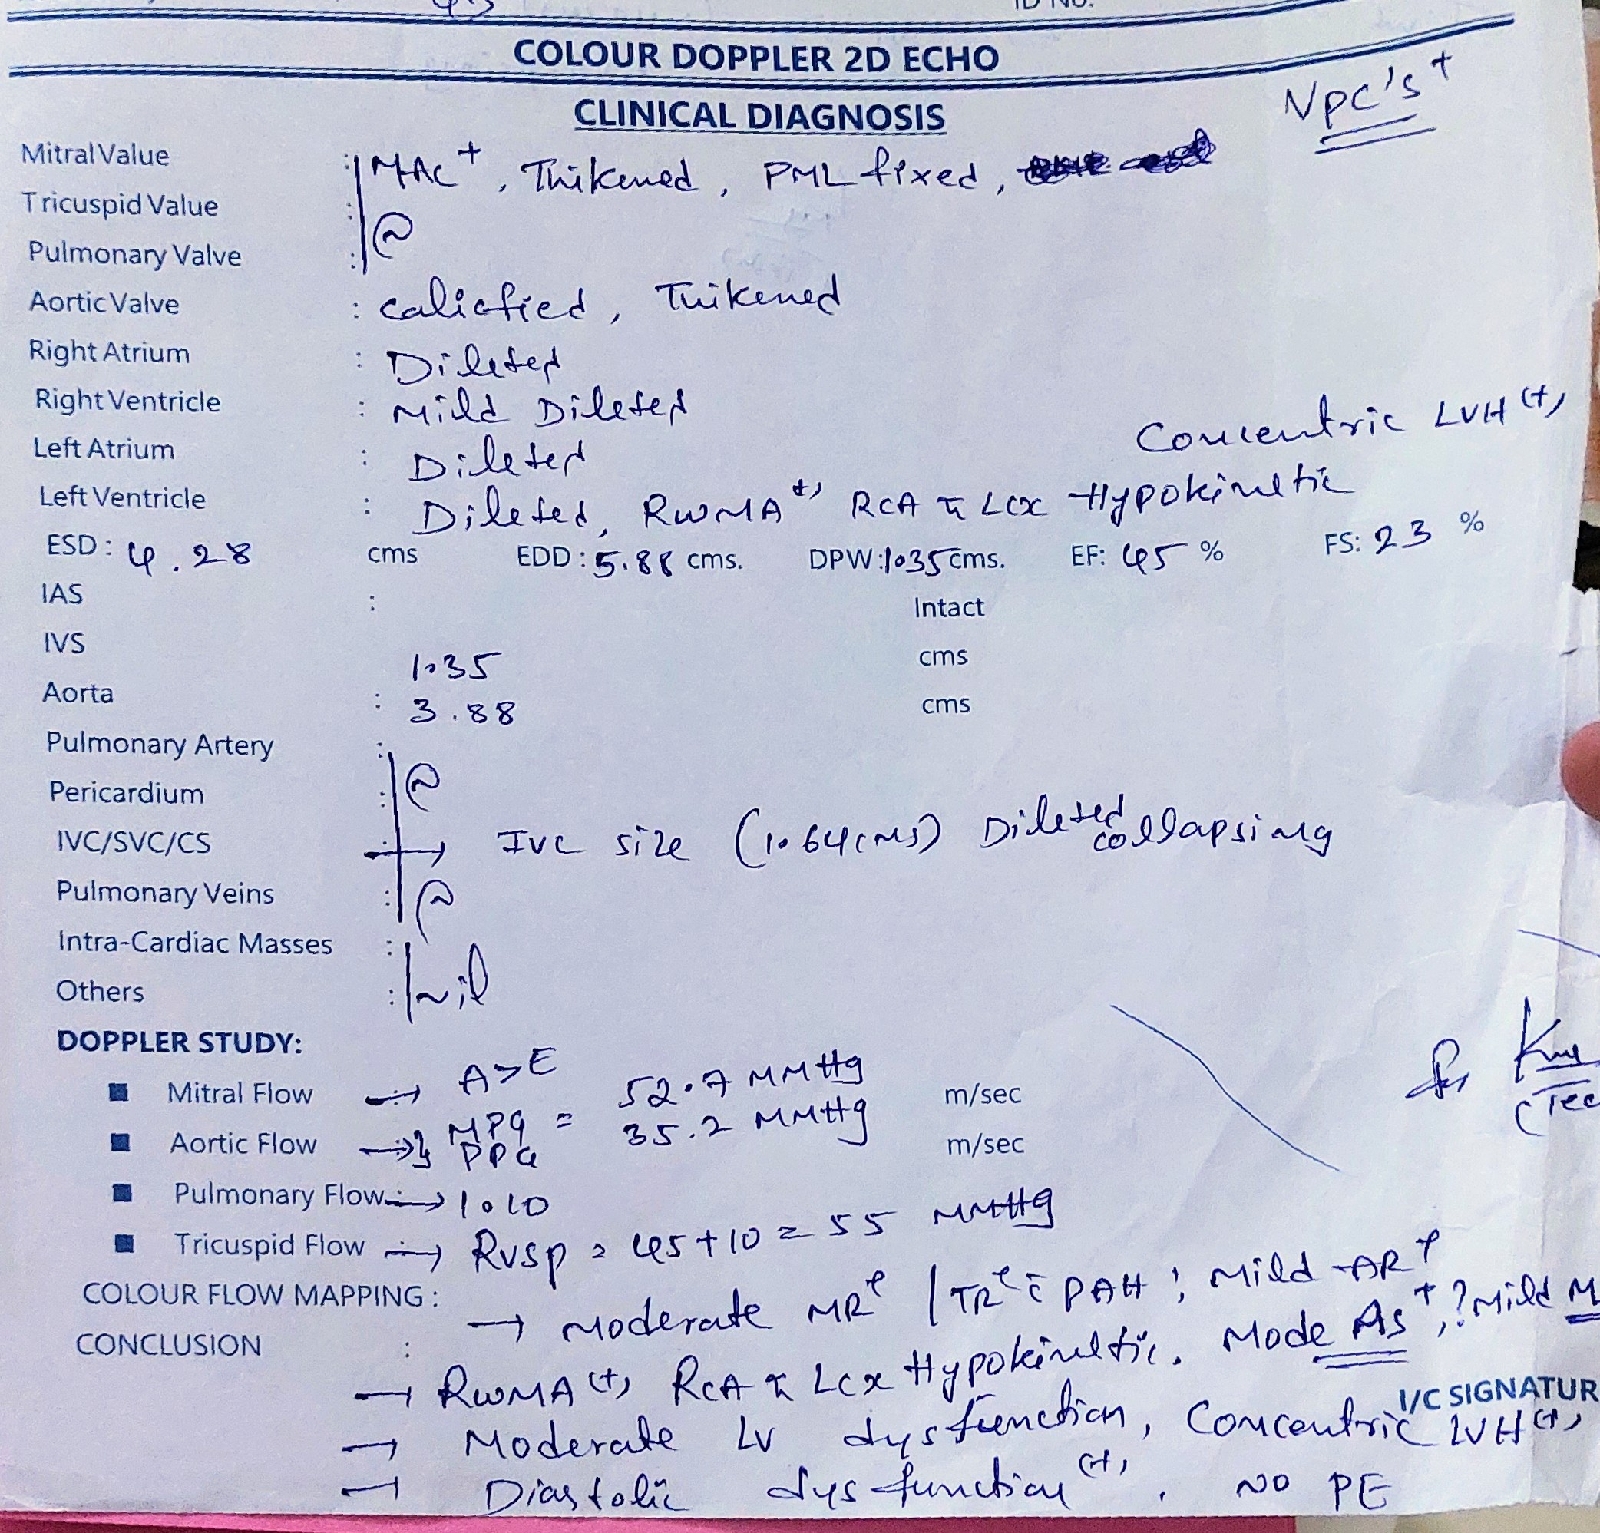 COLOUR DOPPLER 2D ECHO
NPC's +
CLINICAL DIAGNOSIS
Mitral Value : MAC +, Thikened, PML fixed,
Tricuspid Value :
Pulmonary Valve :
Aortic Valve : calicfied, Thikened
Right Atrium : Dileted
Right Ventricle : Mild Dileted
Concentric LVH (+),
Left Atrium : Dileted
Left Ventricle : Dileted, RWMA (+) RCA & LCX Hypokinetic
ESD : 4.28 cms EDD : 5.88 cms. DPW : 1.035 cms. EF: 45 % FS: 23 %
IAS : Intact
IVS 1.35 cms
Aorta : 3.88 cms
Pulmonary Artery :
Pericardium :
IVC/SVC/CS → IVC size (1.64cms) Dileted collapsing
Pulmonary Veins :
Intra-Cardiac Masses :
Others : nil
DOPPLER STUDY:
■ Mitral Flow → A>E m/sec
■ Aortic Flow → MPG = 52.7 MMHg
PPG 35.2 MMHg m/sec
■ Pulmonary Flow → 1.10
■ Tricuspid Flow → RVSP = 45+10 = 55 MMHg
COLOUR FLOW MAPPING : → Moderate MR / TR c̄ PAH ; Mild AR +
CONCLUSION : Mode AS +, ? Mild M
→ RWMA (+), RCA & LCX Hypokinetic.
I/C SIGNATUR
→ Moderate LV dysfunction, Concentric LVH (+),
→ Diastolic dysfunction (+), NO PE